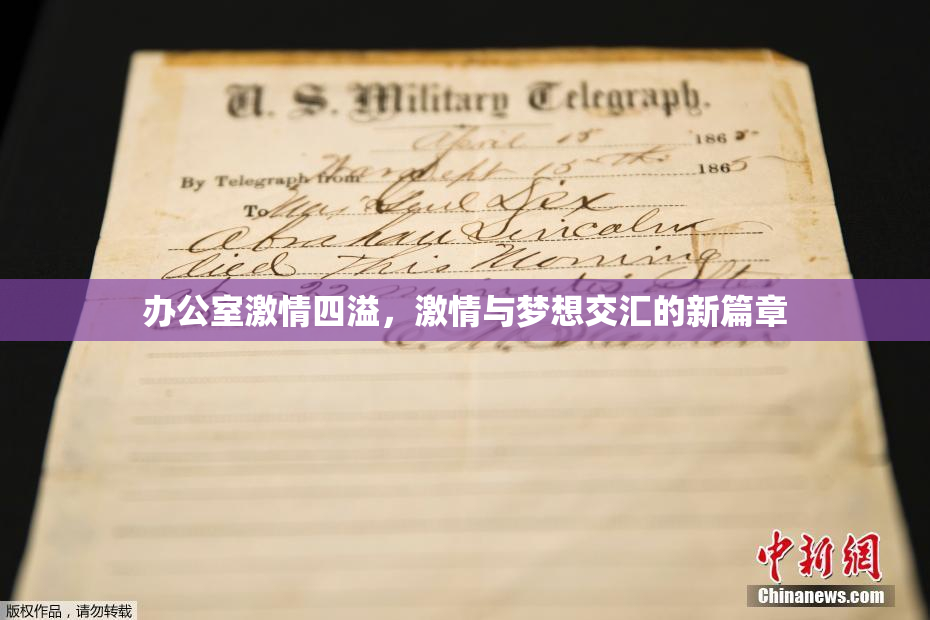 U. S. Military Telegraph.
April 15 1865
By Telegraph from War Dept 15th 1865
To Maj Genl Dix
Abraham Lincoln
died This Morning
at 22 minutes after
办公室激情四溢，激情与梦想交汇的新篇章
中新网
Chinanews.com
版权作品，请勿转载